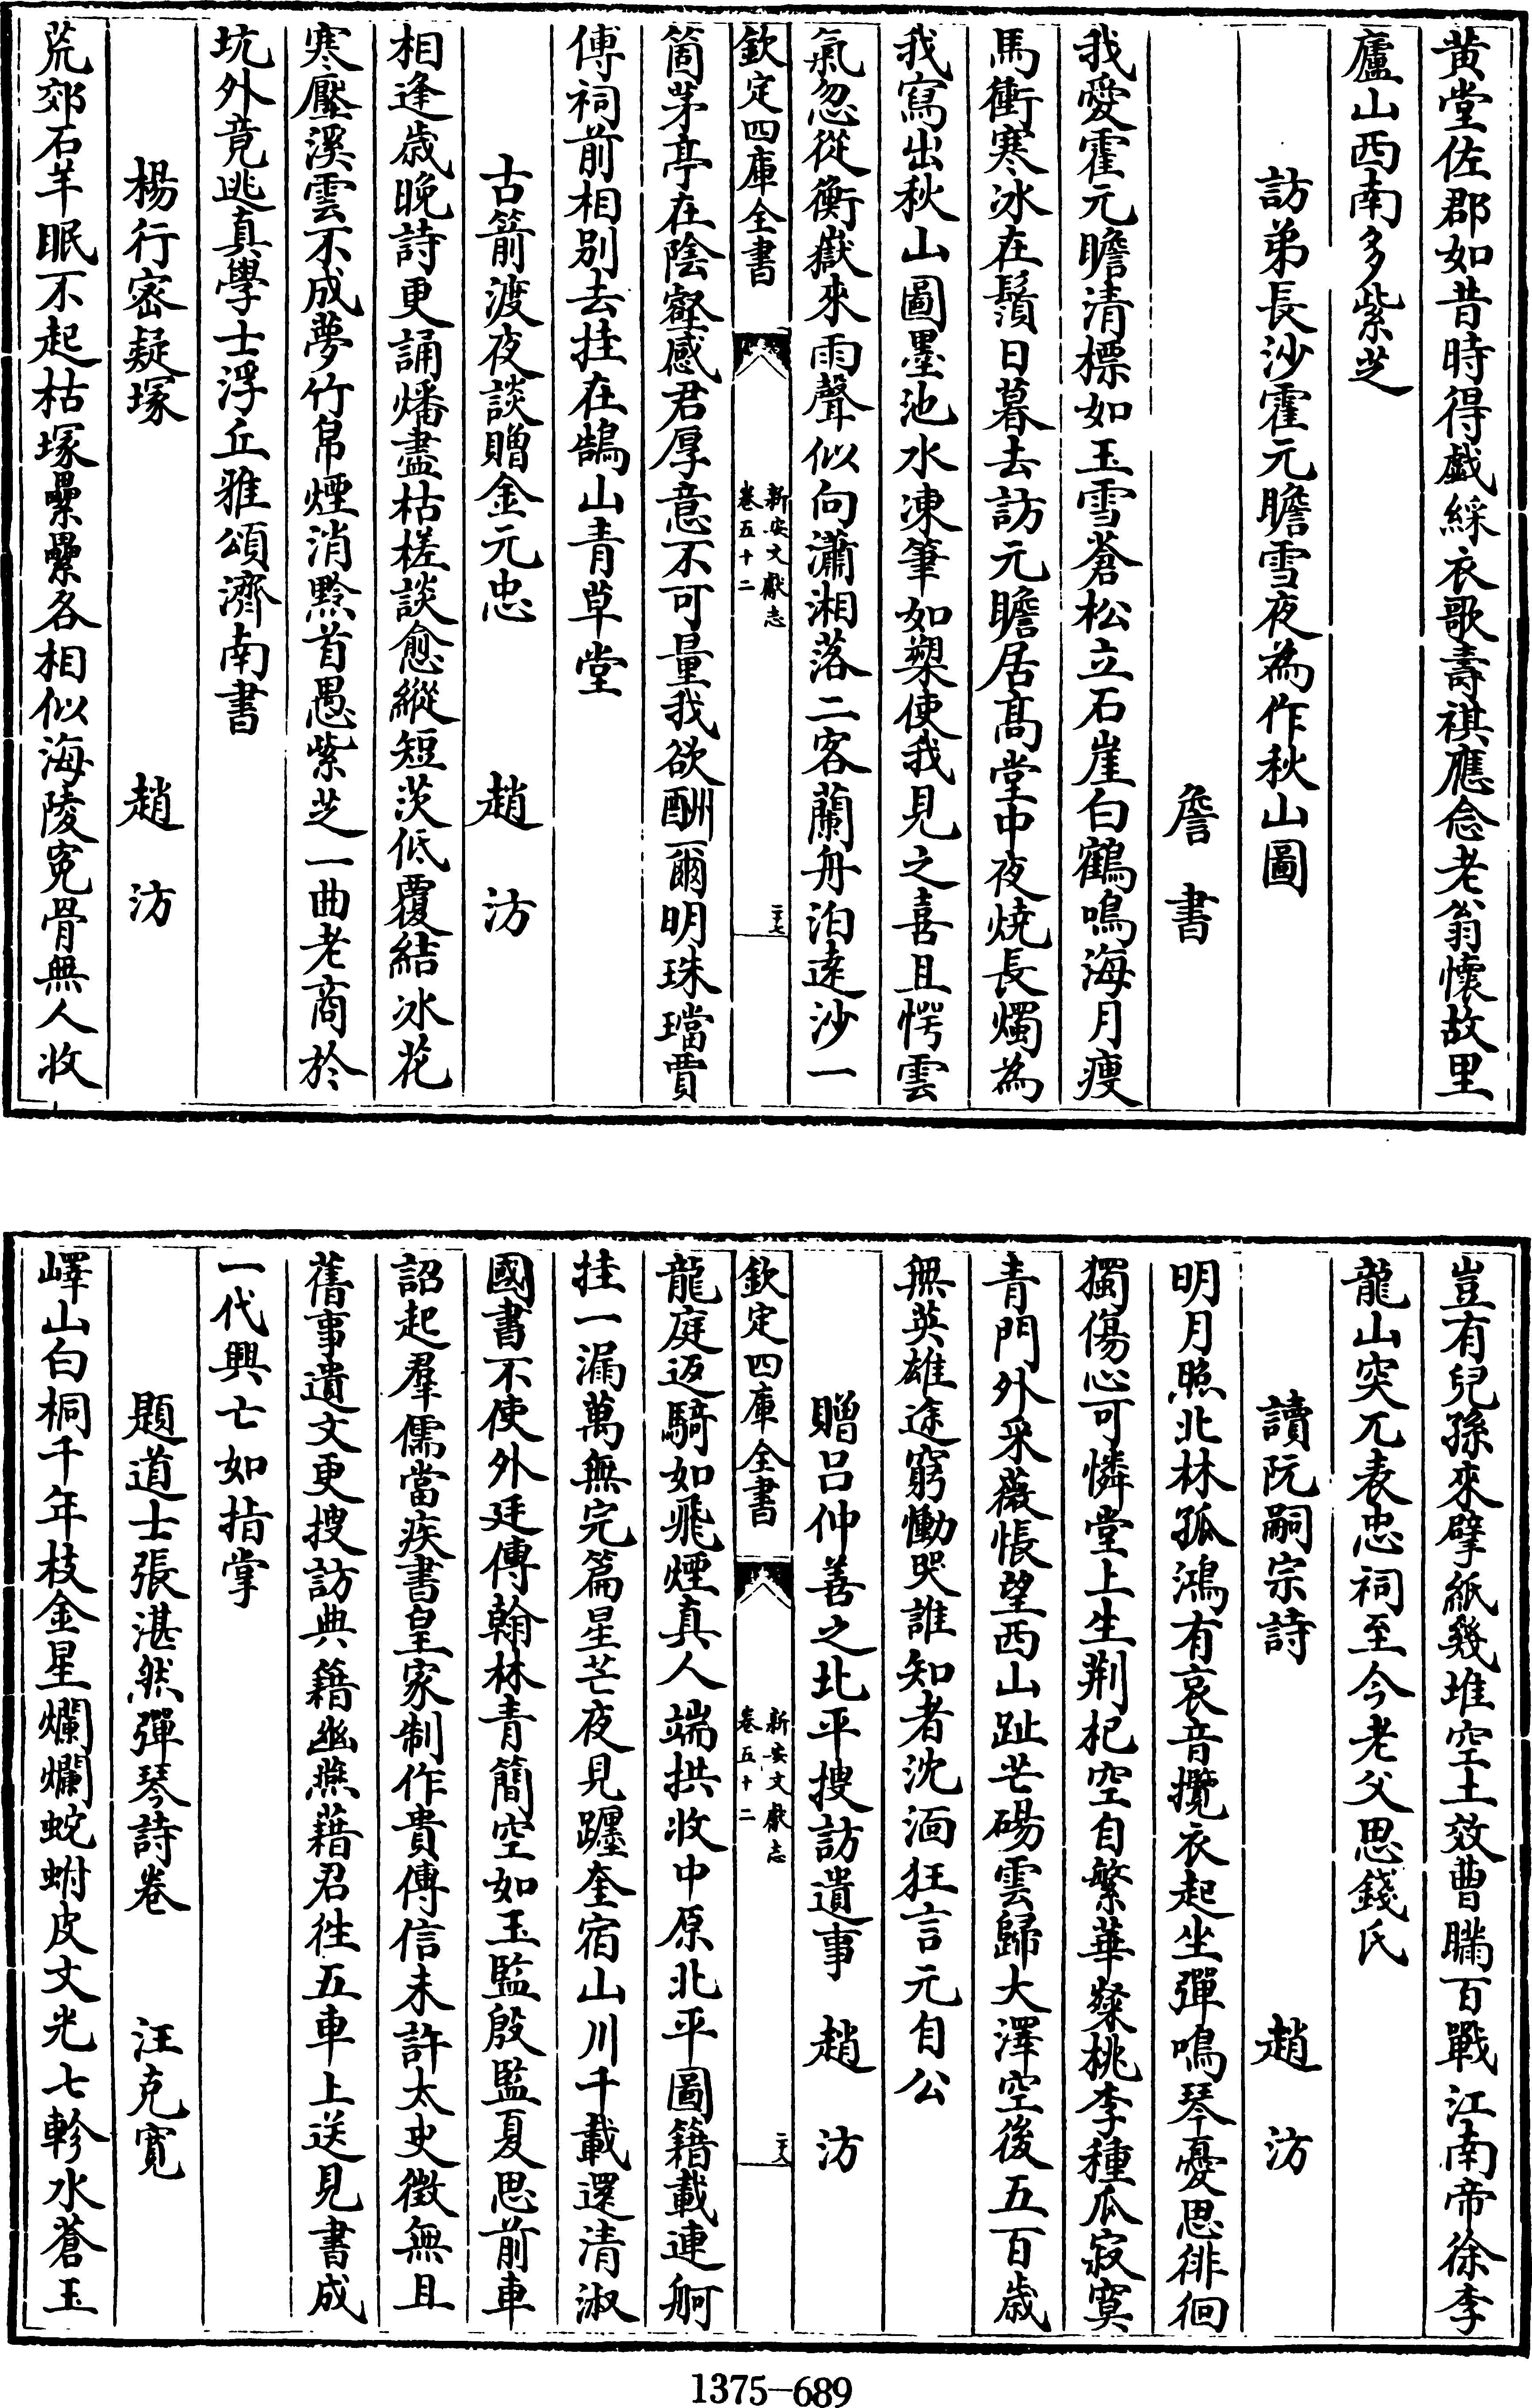 黄堂佐郡如昔時得戯綵衣歌壽祺應念老翁懷故里
廬山西南多紫芝
訪弟長沙霍元瞻雪夜為作秋山圖
詹書
我愛霍元瞻清標如玉雪蒼松立石崖白鶴鳴海月瘦
馬衝寒冰在鬚日暮去訪元瞻居髙堂中夜燒長燭為
我寫出秋山圖墨池水凍筆如槊使我見之喜且愕雲
氣忽從衡嶽來雨聲似向瀟湘落二客蘭舟泊逺沙一
欽定四庫全書
新安文獻志
卷五十二
二十七
箇茅亭在陰壑感君厚意不可量我欲酬爾明珠璫賈
傅祠前相別去挂在鵠山青草堂
古箭渡夜談贈金元忠
趙汸
相逢歳晚詩更誦燔盡枯槎談愈縱短茨低覆結冰花
寒壓溪雲不成夢竹帛煙消黔首愚紫芝一曲老商於
坑外竟逃真學士浮丘雅頌濟南書
楊行宻疑塚
趙汸
荒郊石羊眠不起枯塚纍纍各相似海陵寃骨無人收
豈有兒孫來擘紙幾堆空土效曹瞞百戰江南帝徐李
龍山突兀表忠祠至今老父思錢氏
讀阮嗣宗詩
趙汸
明月照北林孤鴻有哀音攬衣起坐彈鳴琴憂思徘徊
獨傷心可憐堂上生荆杞空自繁華粲桃李種瓜寂寞
青門外采薇悵望西山趾芒碭雲歸大澤空後五百歳
無英雄途窮慟哭誰知者沈湎狂言元自公
贈吕仲善之北平搜訪遺事
趙汸
欽定四庫全書
新安文獻志
卷五十二
二十八
龍庭返騎如飛煙真人端拱收中原北平圖籍載連舸
挂一漏萬無完篇星芒夜見躔奎宿山川千載還清淑
國書不使外廷傳翰林青簡空如玉監殷監夏思前車
詔起羣儒當疾書皇家制作貴傳信未許太史徵無且
舊事遺文更搜訪典籍幽燕藉君徃五車上送見書成
一代興亡如指掌
題道士張湛然彈琴詩卷
汪克寛
嶧山白桐千年枝金星爛爛蛇蚹皮文光七軫水蒼玉
1375—689